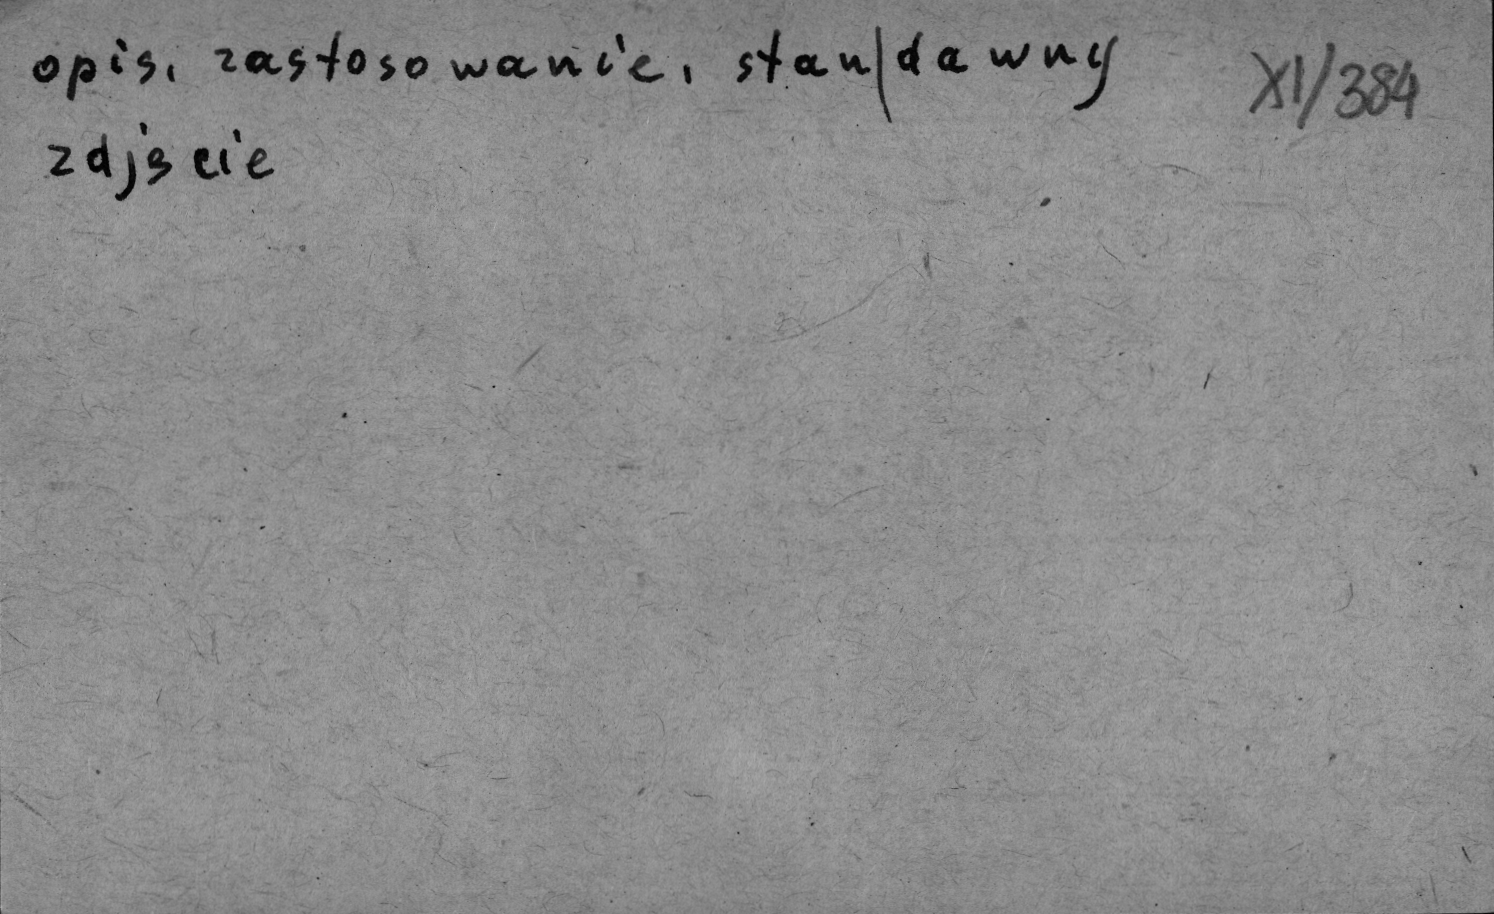 opis, zastosowanie, stan/dawny XI/384
zdjście